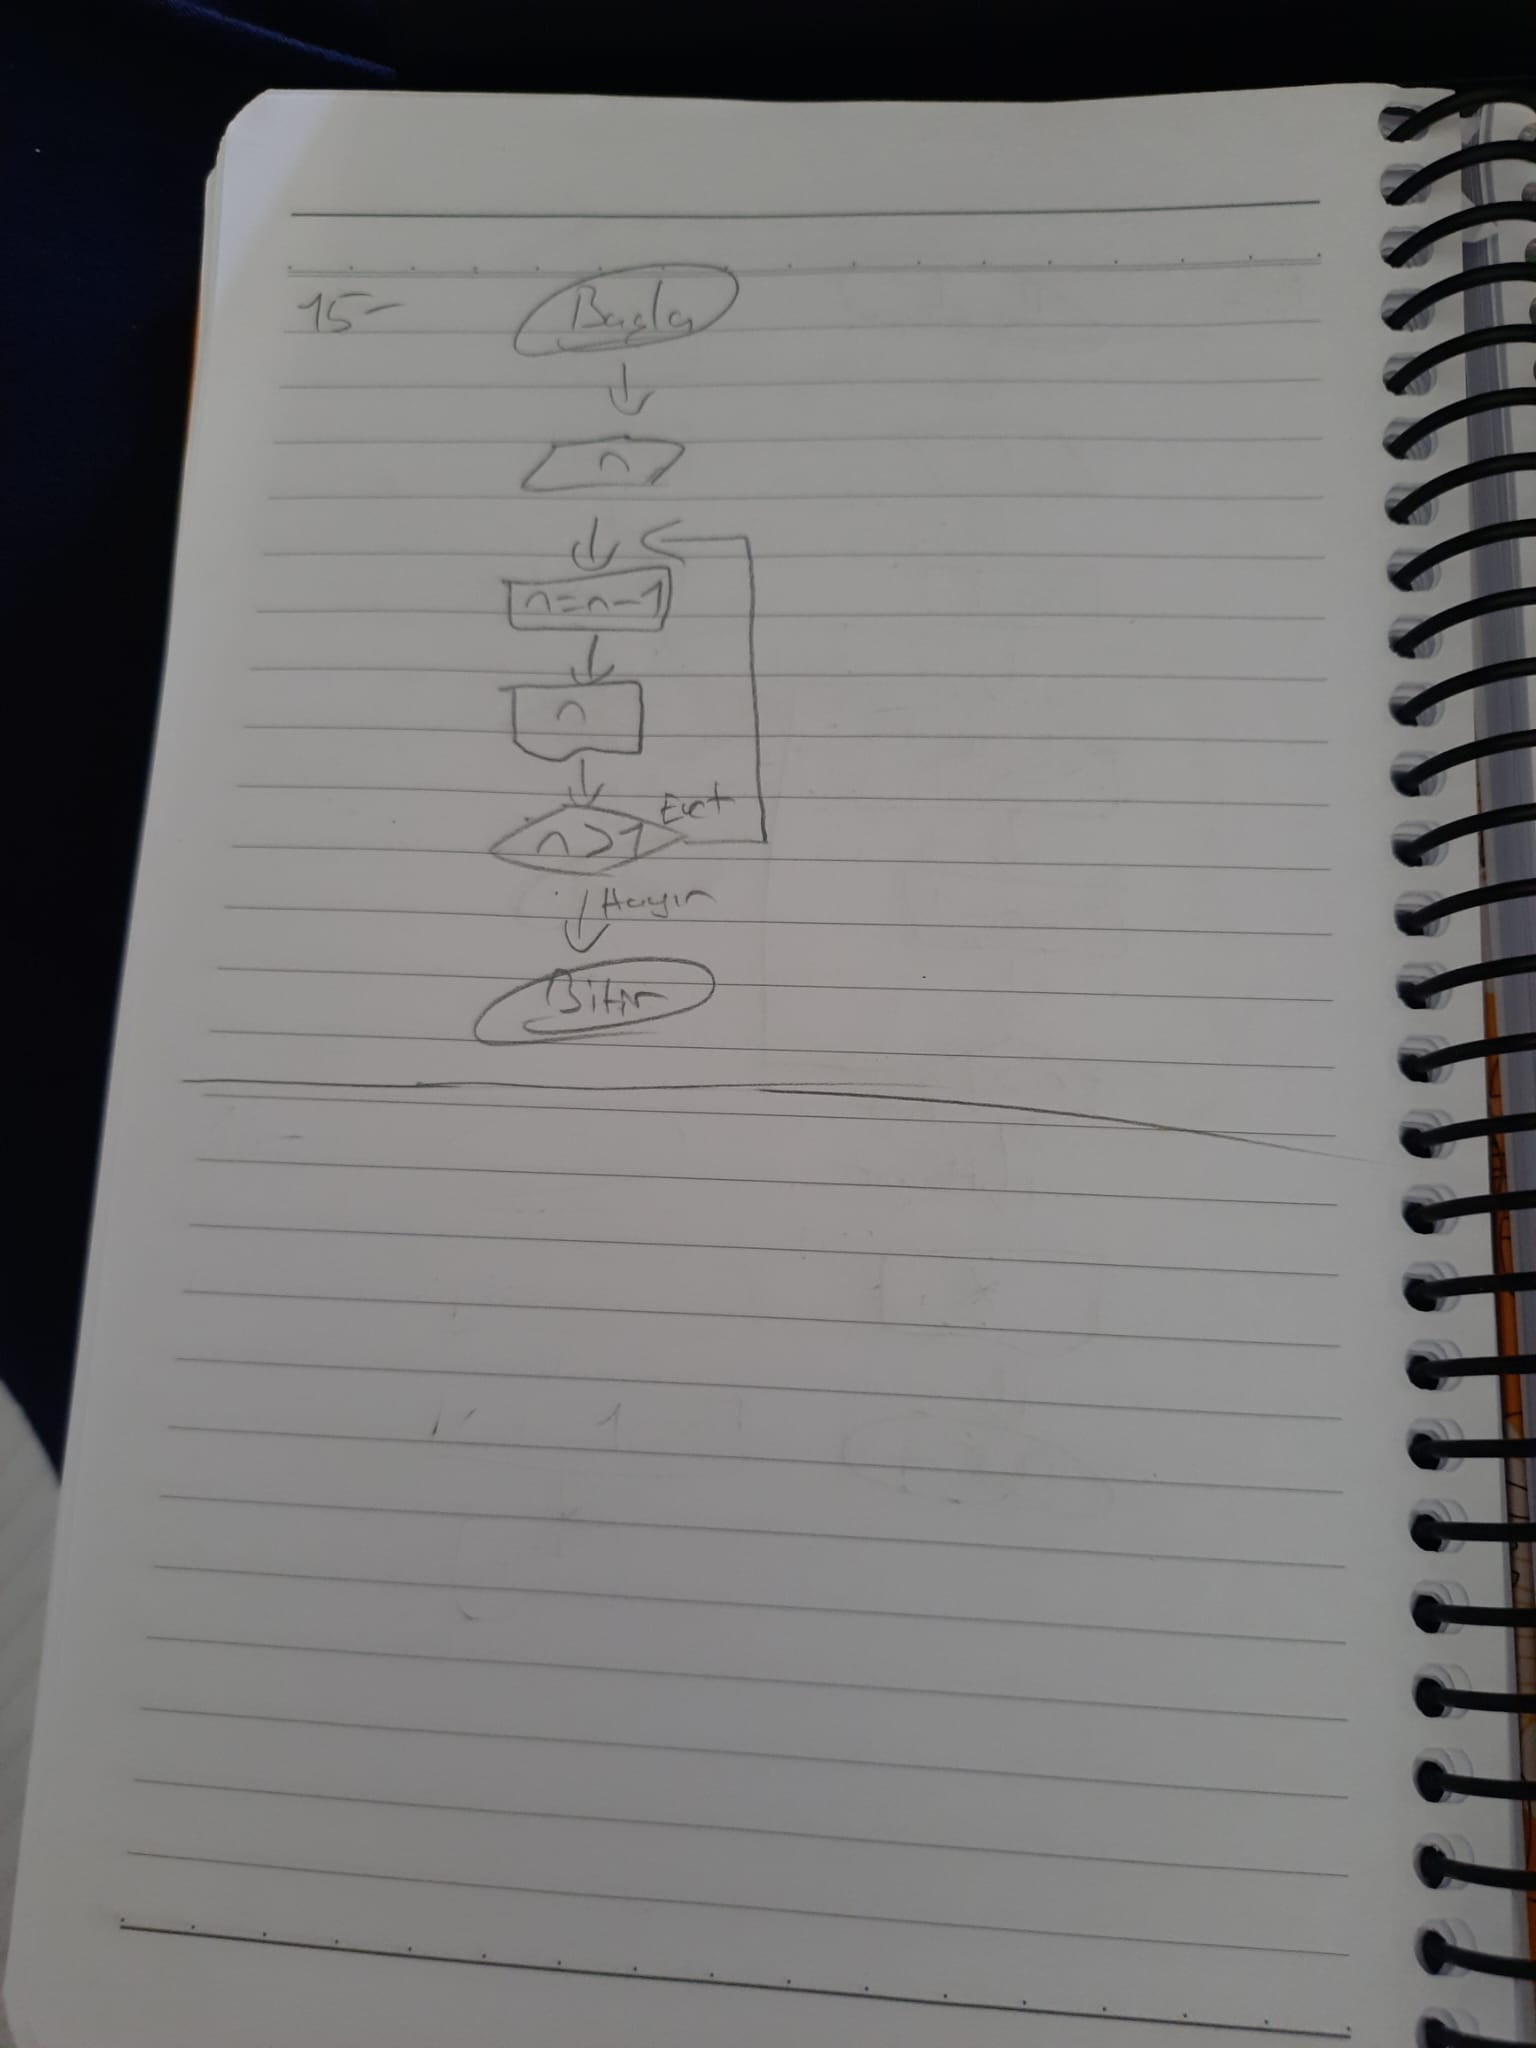 15- Başla
n
n=n-1
n
n>1 Evet
Hayır
Bitir